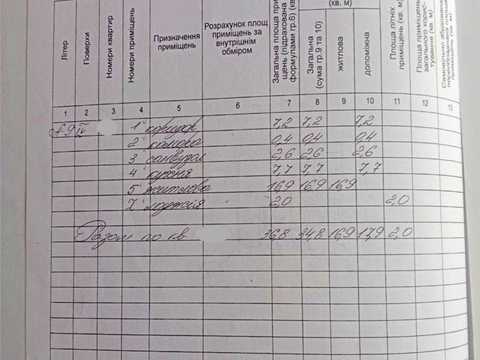 Літер
Поверхи
Номери квартир
Номери приміщень
Призначення приміщень
Розрахунок площ приміщень за внутрішнім обміром
Загальна площа при
щень (підрахована
формулами гр.6) (кв
(кв. м)
Загальна (сума гр.9 та 10)
житлова
допоміжна
площі літніх приміщень (кв. м)
Площа приміщень загального корис-
тування (кв. м)
1 2 3 4 5 6 7 8 9 10 11 12 13
А9 IV 1 коридор 7,2 7,2 7,2
2 0,4 0,4 0,4
3 санвузол 2,6 2,6 2,6
4 кухня 7,7 7,7 7,7
5 житлова 16,9 16,9 16,9
лоджія 2,0 2,0
Разом по кв. 36,8 34,8 16,9 17,9 2,0